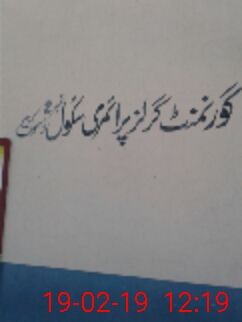 گورنمنٹ گرلز پرائمری سکول
19-02-19 12:19